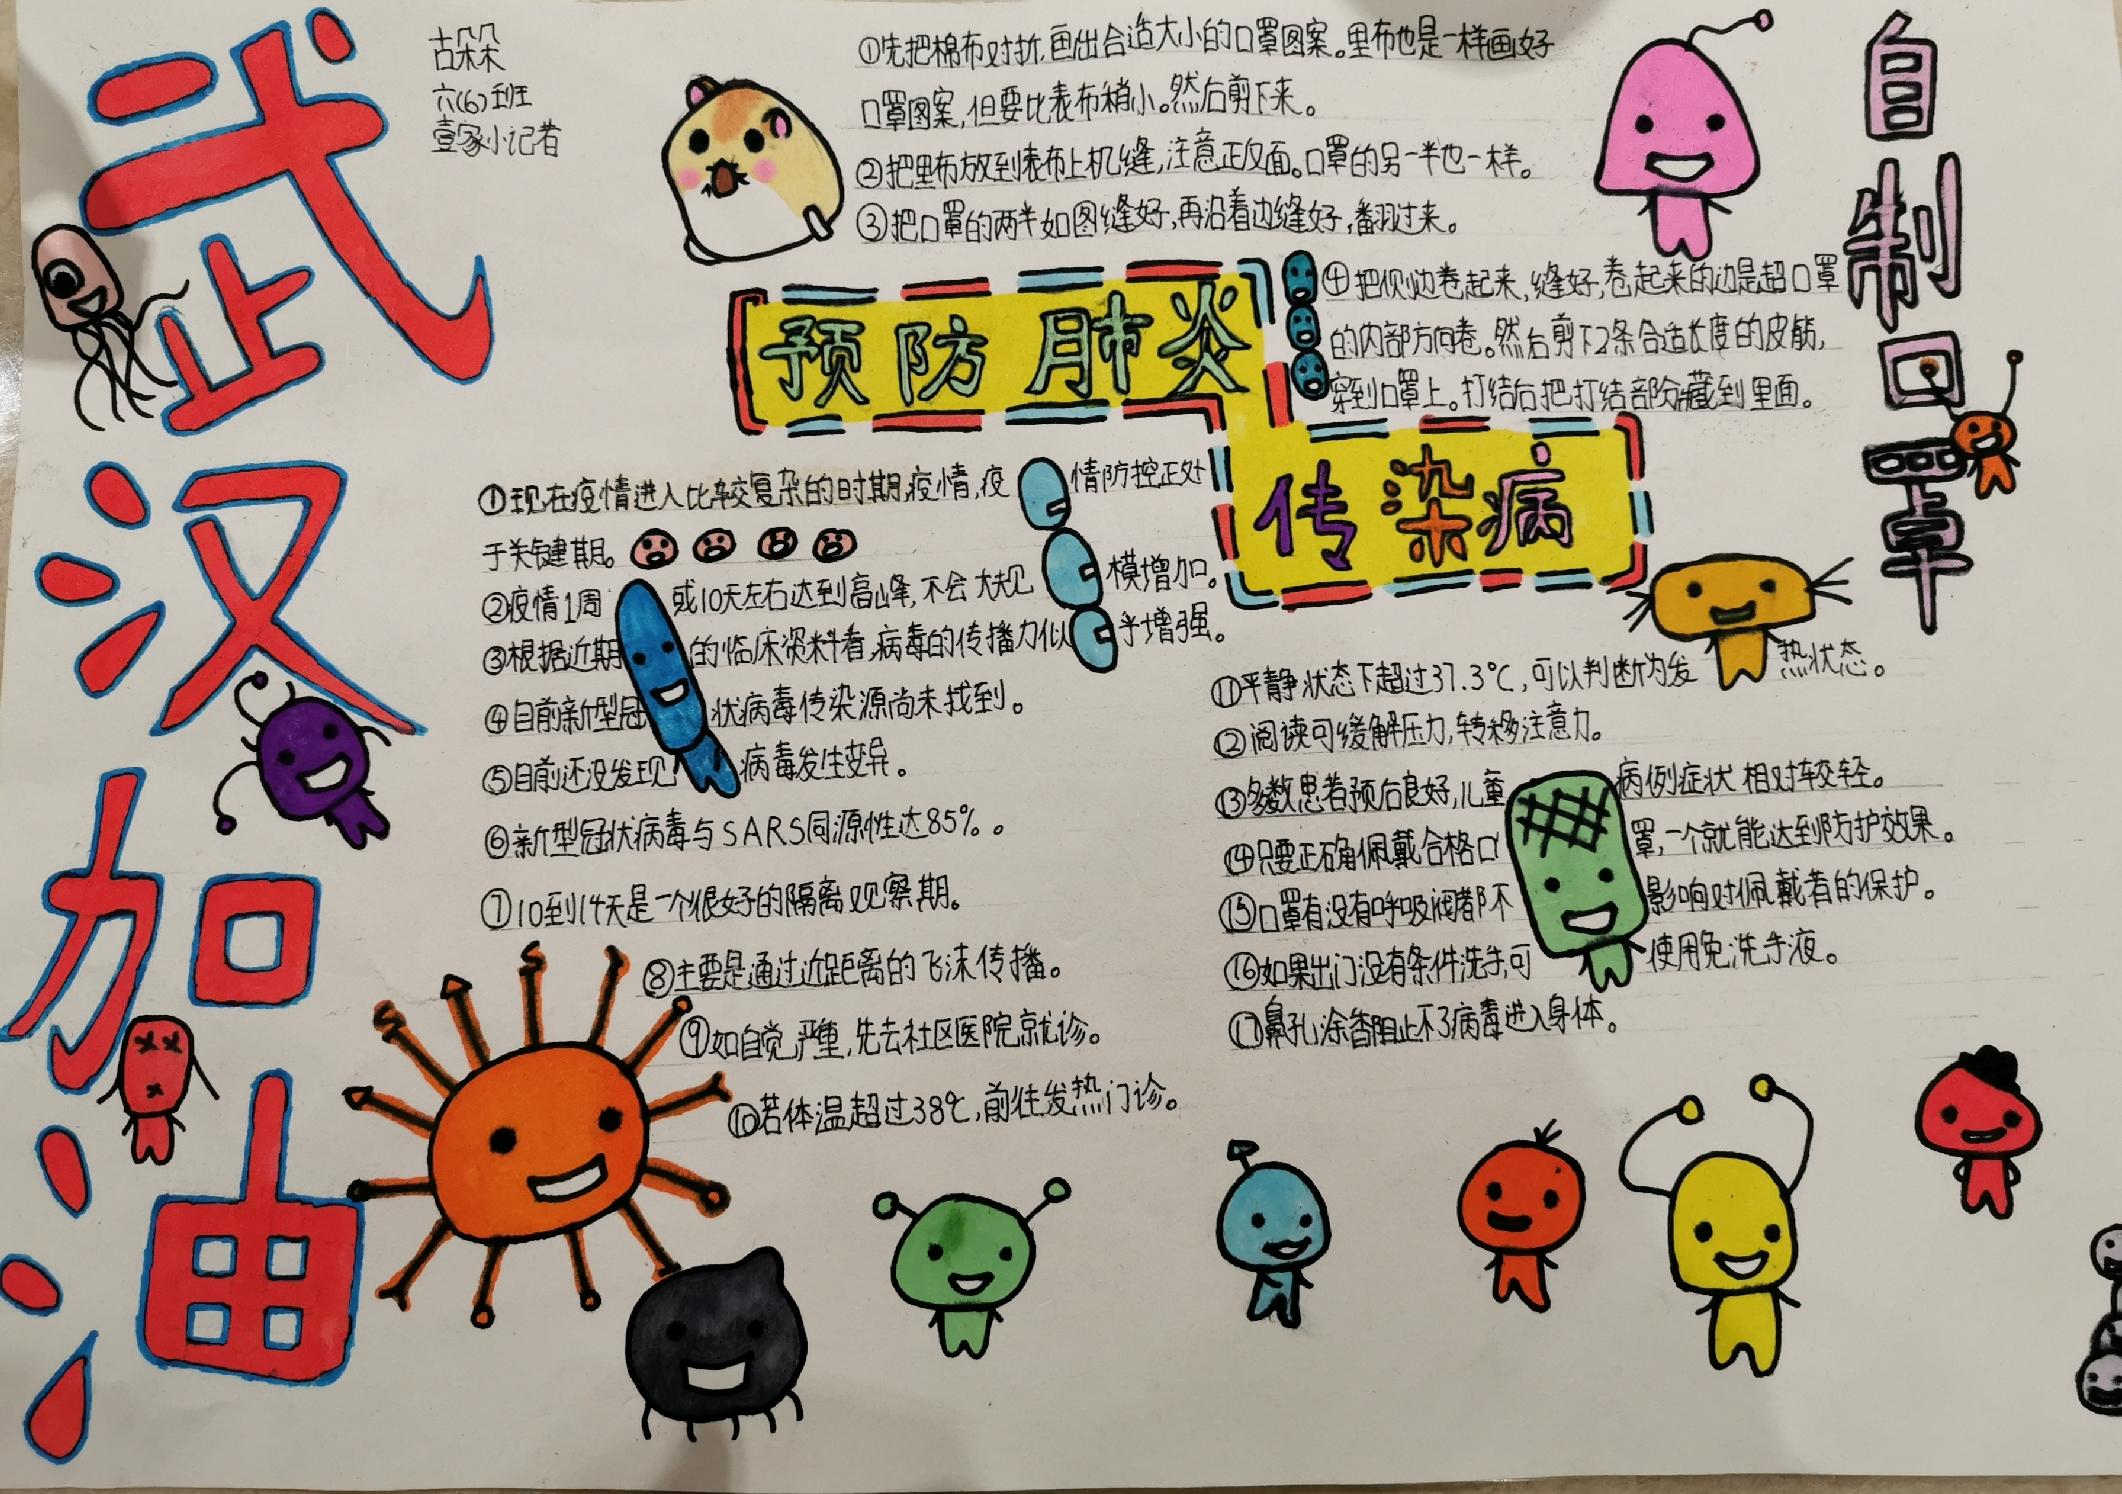 武汉加油
古朵朵
六(6)班
壹家小记者
自制口罩
①先把棉布对折,画出合造大小的口罩图案。里布也是一样画好
口罩图案,但要比表布稍小。然后剪下来。
②把里布放到表布上机缝,注意正反面。口罩的另一半也一样。
③把口罩的两半如图缝好,再沿着边缝好,翻过来。
④把侧边卷起来,缝好,卷起来的边是超口罩
的内部方向卷。然后剪下2条合造长度的皮筋,
穿到口罩上。打结后把打结部分藏到里面。
预防肺炎
传染病
①现在疫情进入比较复杂的时期,疫情,疫情防控正处
于关键期。
②疫情1周或10天左右达到高峰,不会大规模增加。
③根据近期的临床资料看,病毒的传播力似乎增强。
④目前新型冠状病毒传染源尚未找到。
⑤目前还没发现病毒发生变异。
⑥新型冠状病毒与SARS同源性达85%。
⑦10到14天是一个很好的隔离观察期。
⑧主要是通过近距离的飞沫传播。
⑨如自觉严重,先去社区医院就诊。
⑩若体温超过38℃,前往发热门诊。
⑪平静状态下超过37.3℃,可以判断为发热状态。
⑫阅读可缓解压力,转移注意力。
⑬多数患者预后良好,儿童病例症状相对较轻。
⑭只要正确佩戴合格口罩,一个就能达到防护效果。
⑮口罩有没有呼吸阀都不影响对佩戴者的保护。
⑯如果出门没有条件洗手,可使用免洗手液。
⑰鼻孔涂香阻止不了病毒进入身体。